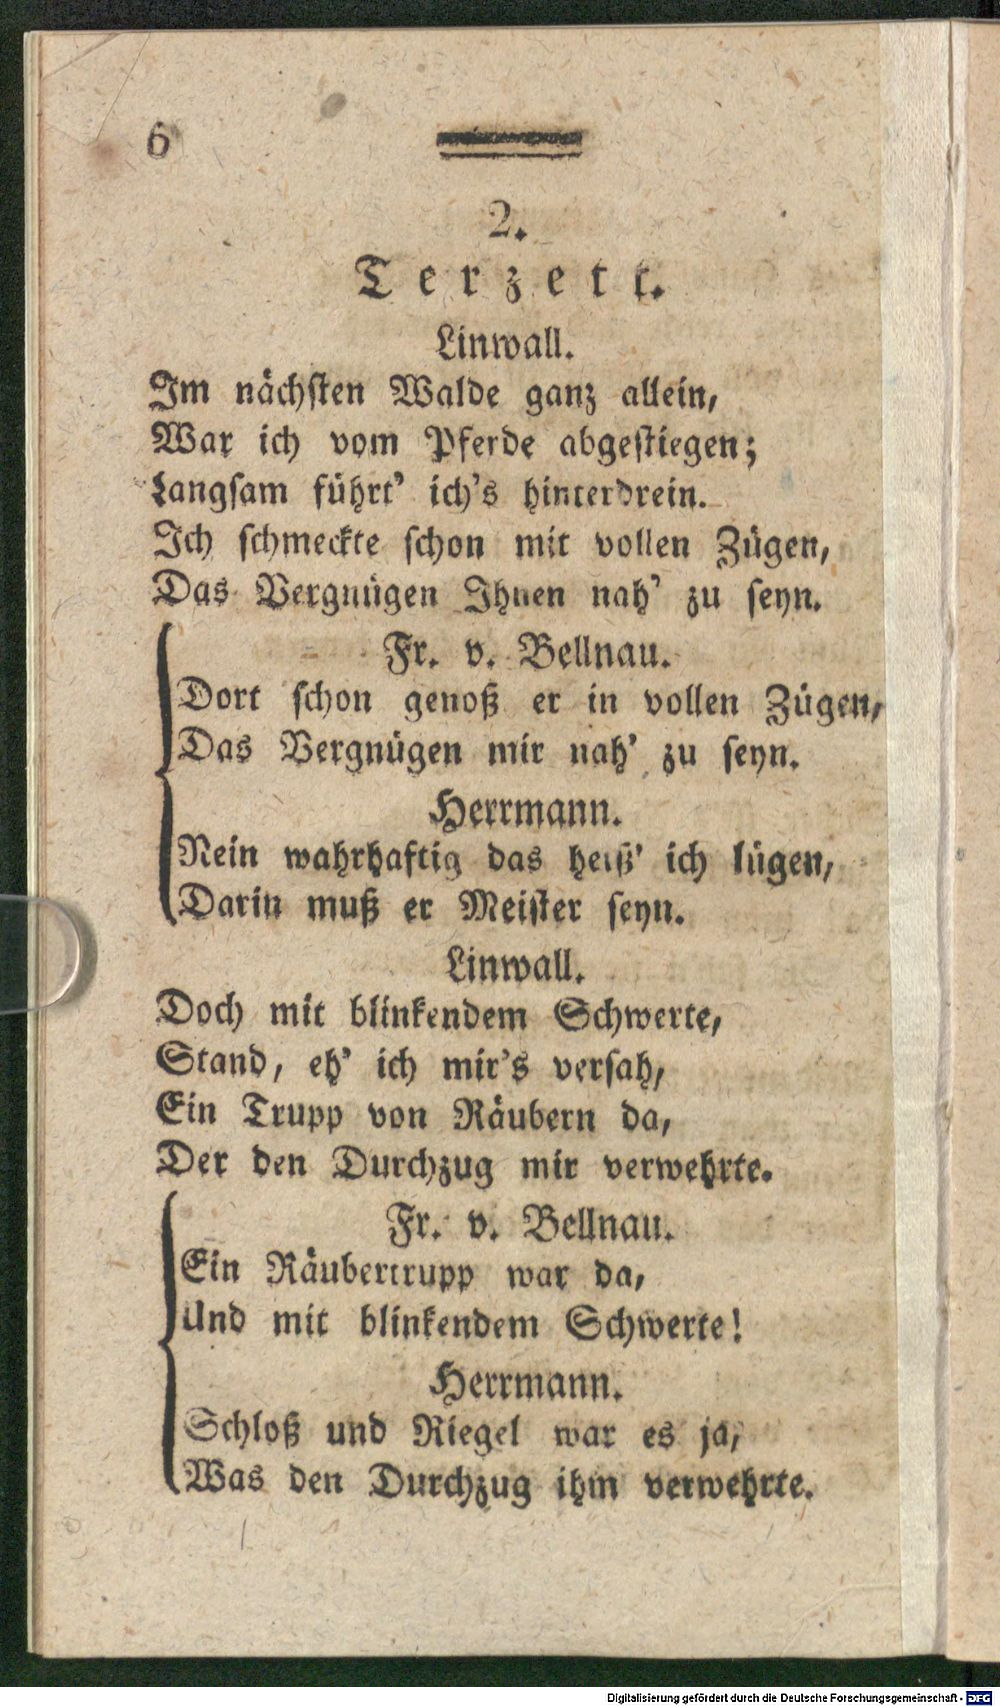 6
2.
Terzett.
Linwall.
Im nächsten Walde ganz allein,
War ich vom Pferde abgestiegen;
Langsam führt' ich's hinterdrein.
Ich schmeckte schon mit vollen Zügen,
Das Vergnügen Ihnen nah' zu seyn.
Fr. v. Bellnau.
Dort schon genoß er in vollen Zügen,
Das Vergnügen mir nah' zu seyn.
Herrmann.
Nein wahrhaftig das heiß' ich lügen,
Darin muß er Meister seyn.
Linwall.
Doch mit blinkendem Schwerte,
Stand, eh' ich mir's versah,
Ein Trupp von Räubern da,
Der den Durchzug mir verwehrte.
Fr. v. Bellnau.
Ein Räubertrupp war da,
Und mit blinkendem Schwerte!
Herrmann.
Schloß und Riegel war es ja,
Was den Durchzug ihm verwehrte.
Digitalisierung gefördert durch die Deutsche Forschungsgemeinschaft - DFG